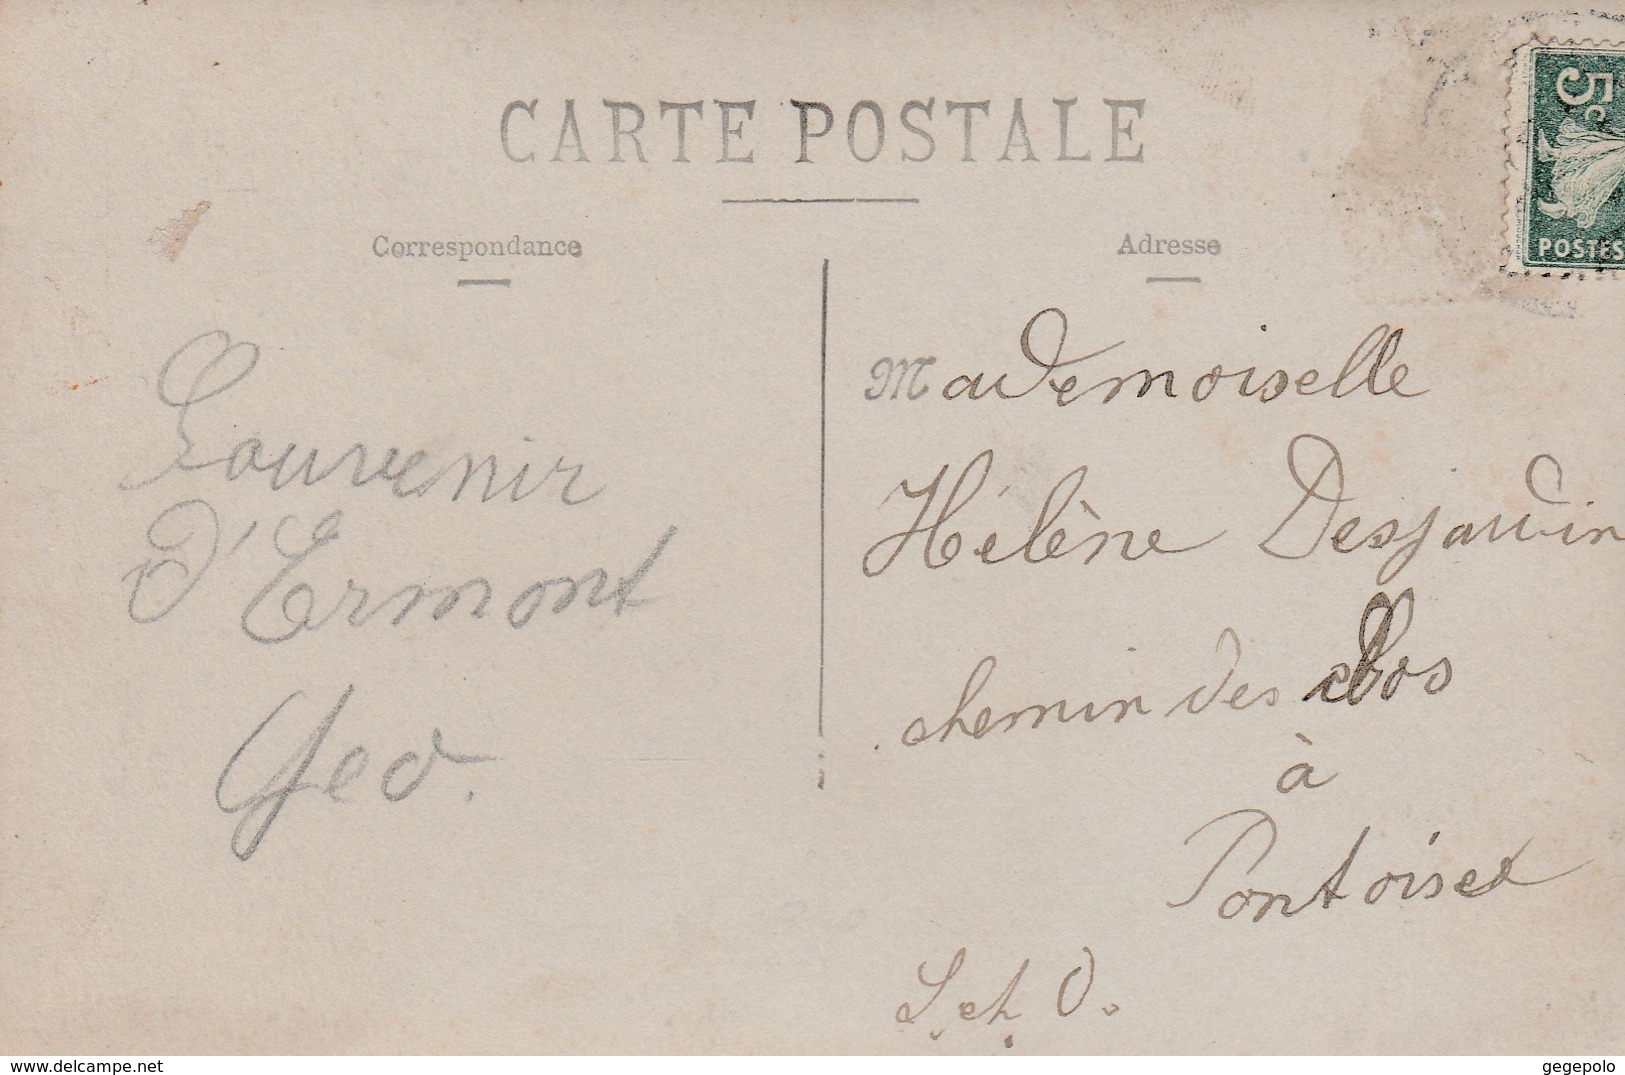 CARTE POSTALE
Correspondance
Adresse
5c
POSTES
Souvenir
d'Ermont
Geo.
Mademoiselle
Hélène Desjardin
chemin des Clos
à
Pontoise
S. et O.
www.delcampe.net
gegepolo